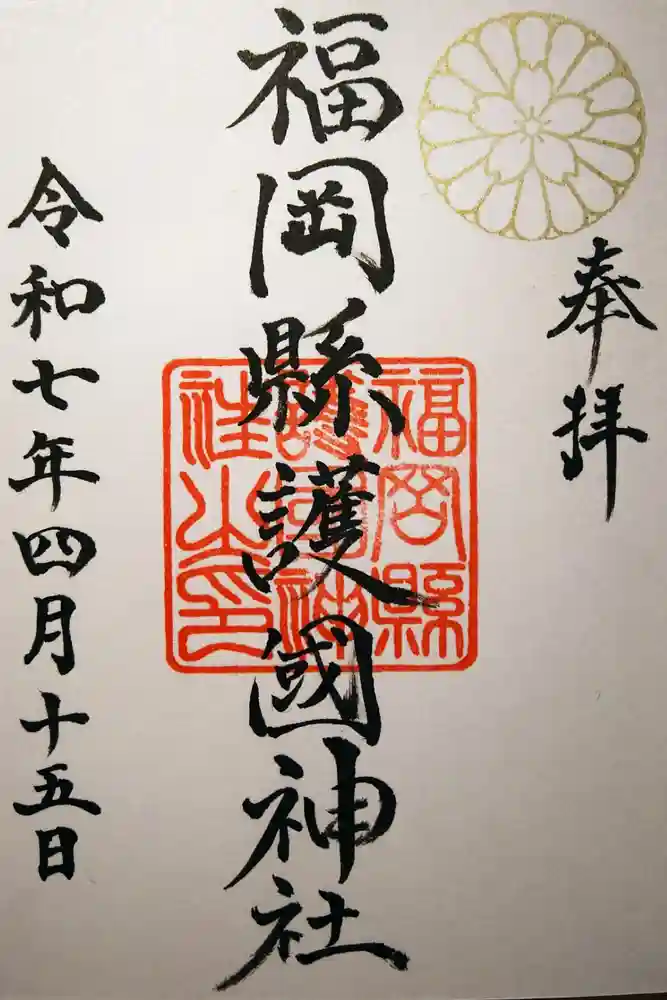 奉拝
福岡縣護國神社
福岡縣
護國神
社之印
令和七年四月十五日